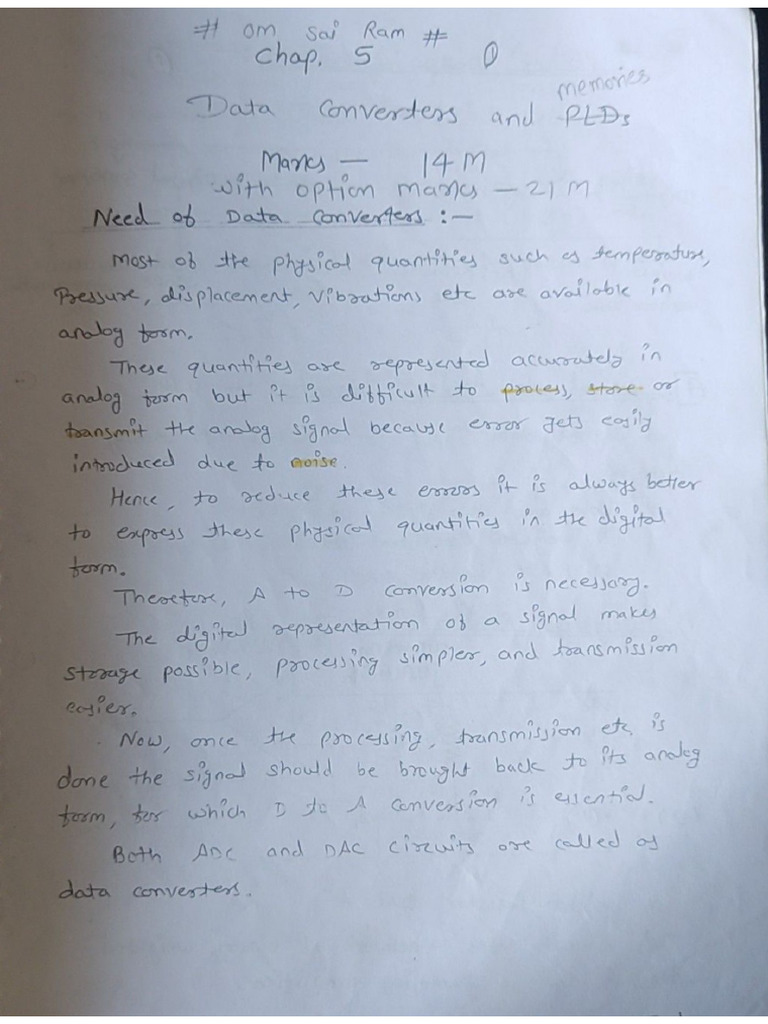 # om sai Ram #
Chap. 5 ①
memories
Data Converters and PLDs
Marks — 14 M
with option marks — 21 M
Need of Data Converters :—
Most of the physical quantities such as temperature,
Pressure, displacement, vibrations etc are available in
analog form.
These quantities are represented accurately in
analog form but it is difficult to process, store or
transmit the analog signal because error gets easily
introduced due to noise.
Hence, to reduce these errors it is always better
to express these physical quantities in the digital
form.
Therefore, A to D conversion is necessary.
The digital representation of a signal makes
storage possible, processing simpler, and transmission
easier.
Now, once the processing, transmission etc. is
done the signal should be brought back to its analog
form, for which D to A conversion is essential.
Both ADC and DAC circuits are called as
data converters.